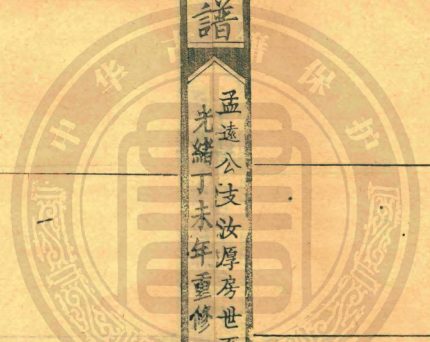 譜
孟遠公支汝厚房世
光緒丁未年重修
中华古籍保护